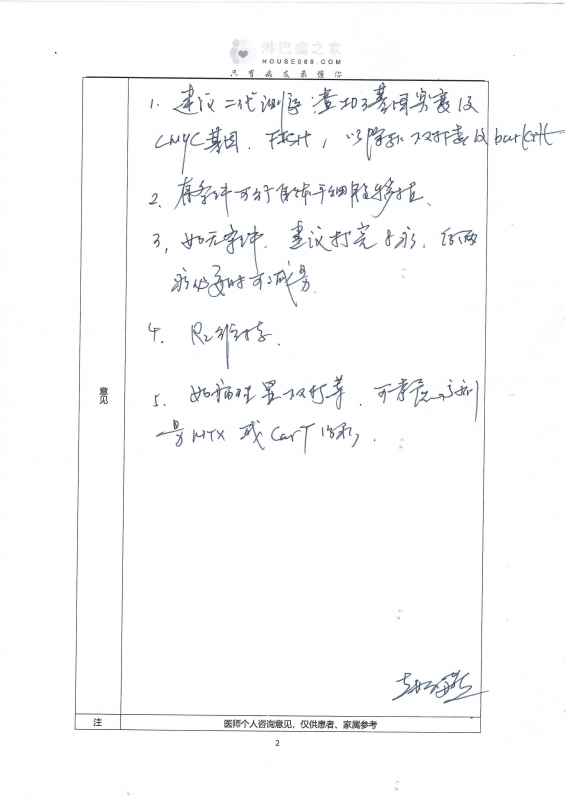 淋巴瘤之家
HOUSE086.COM
只有病友最懂你
1. 建议二代测序 查 基因突变及
CMYC基因 FISH, 以 双打击及burkitt
2. 有条件可行自体干细胞移植.
3, 如无条件. 建议打完 疗, 后两
疗
4. R2维持.
意见
5. 如 双打击. 可考虑 剂
量MTX 或CarT 治疗.
注
医师个人咨询意见，仅供患者、家属参考
2